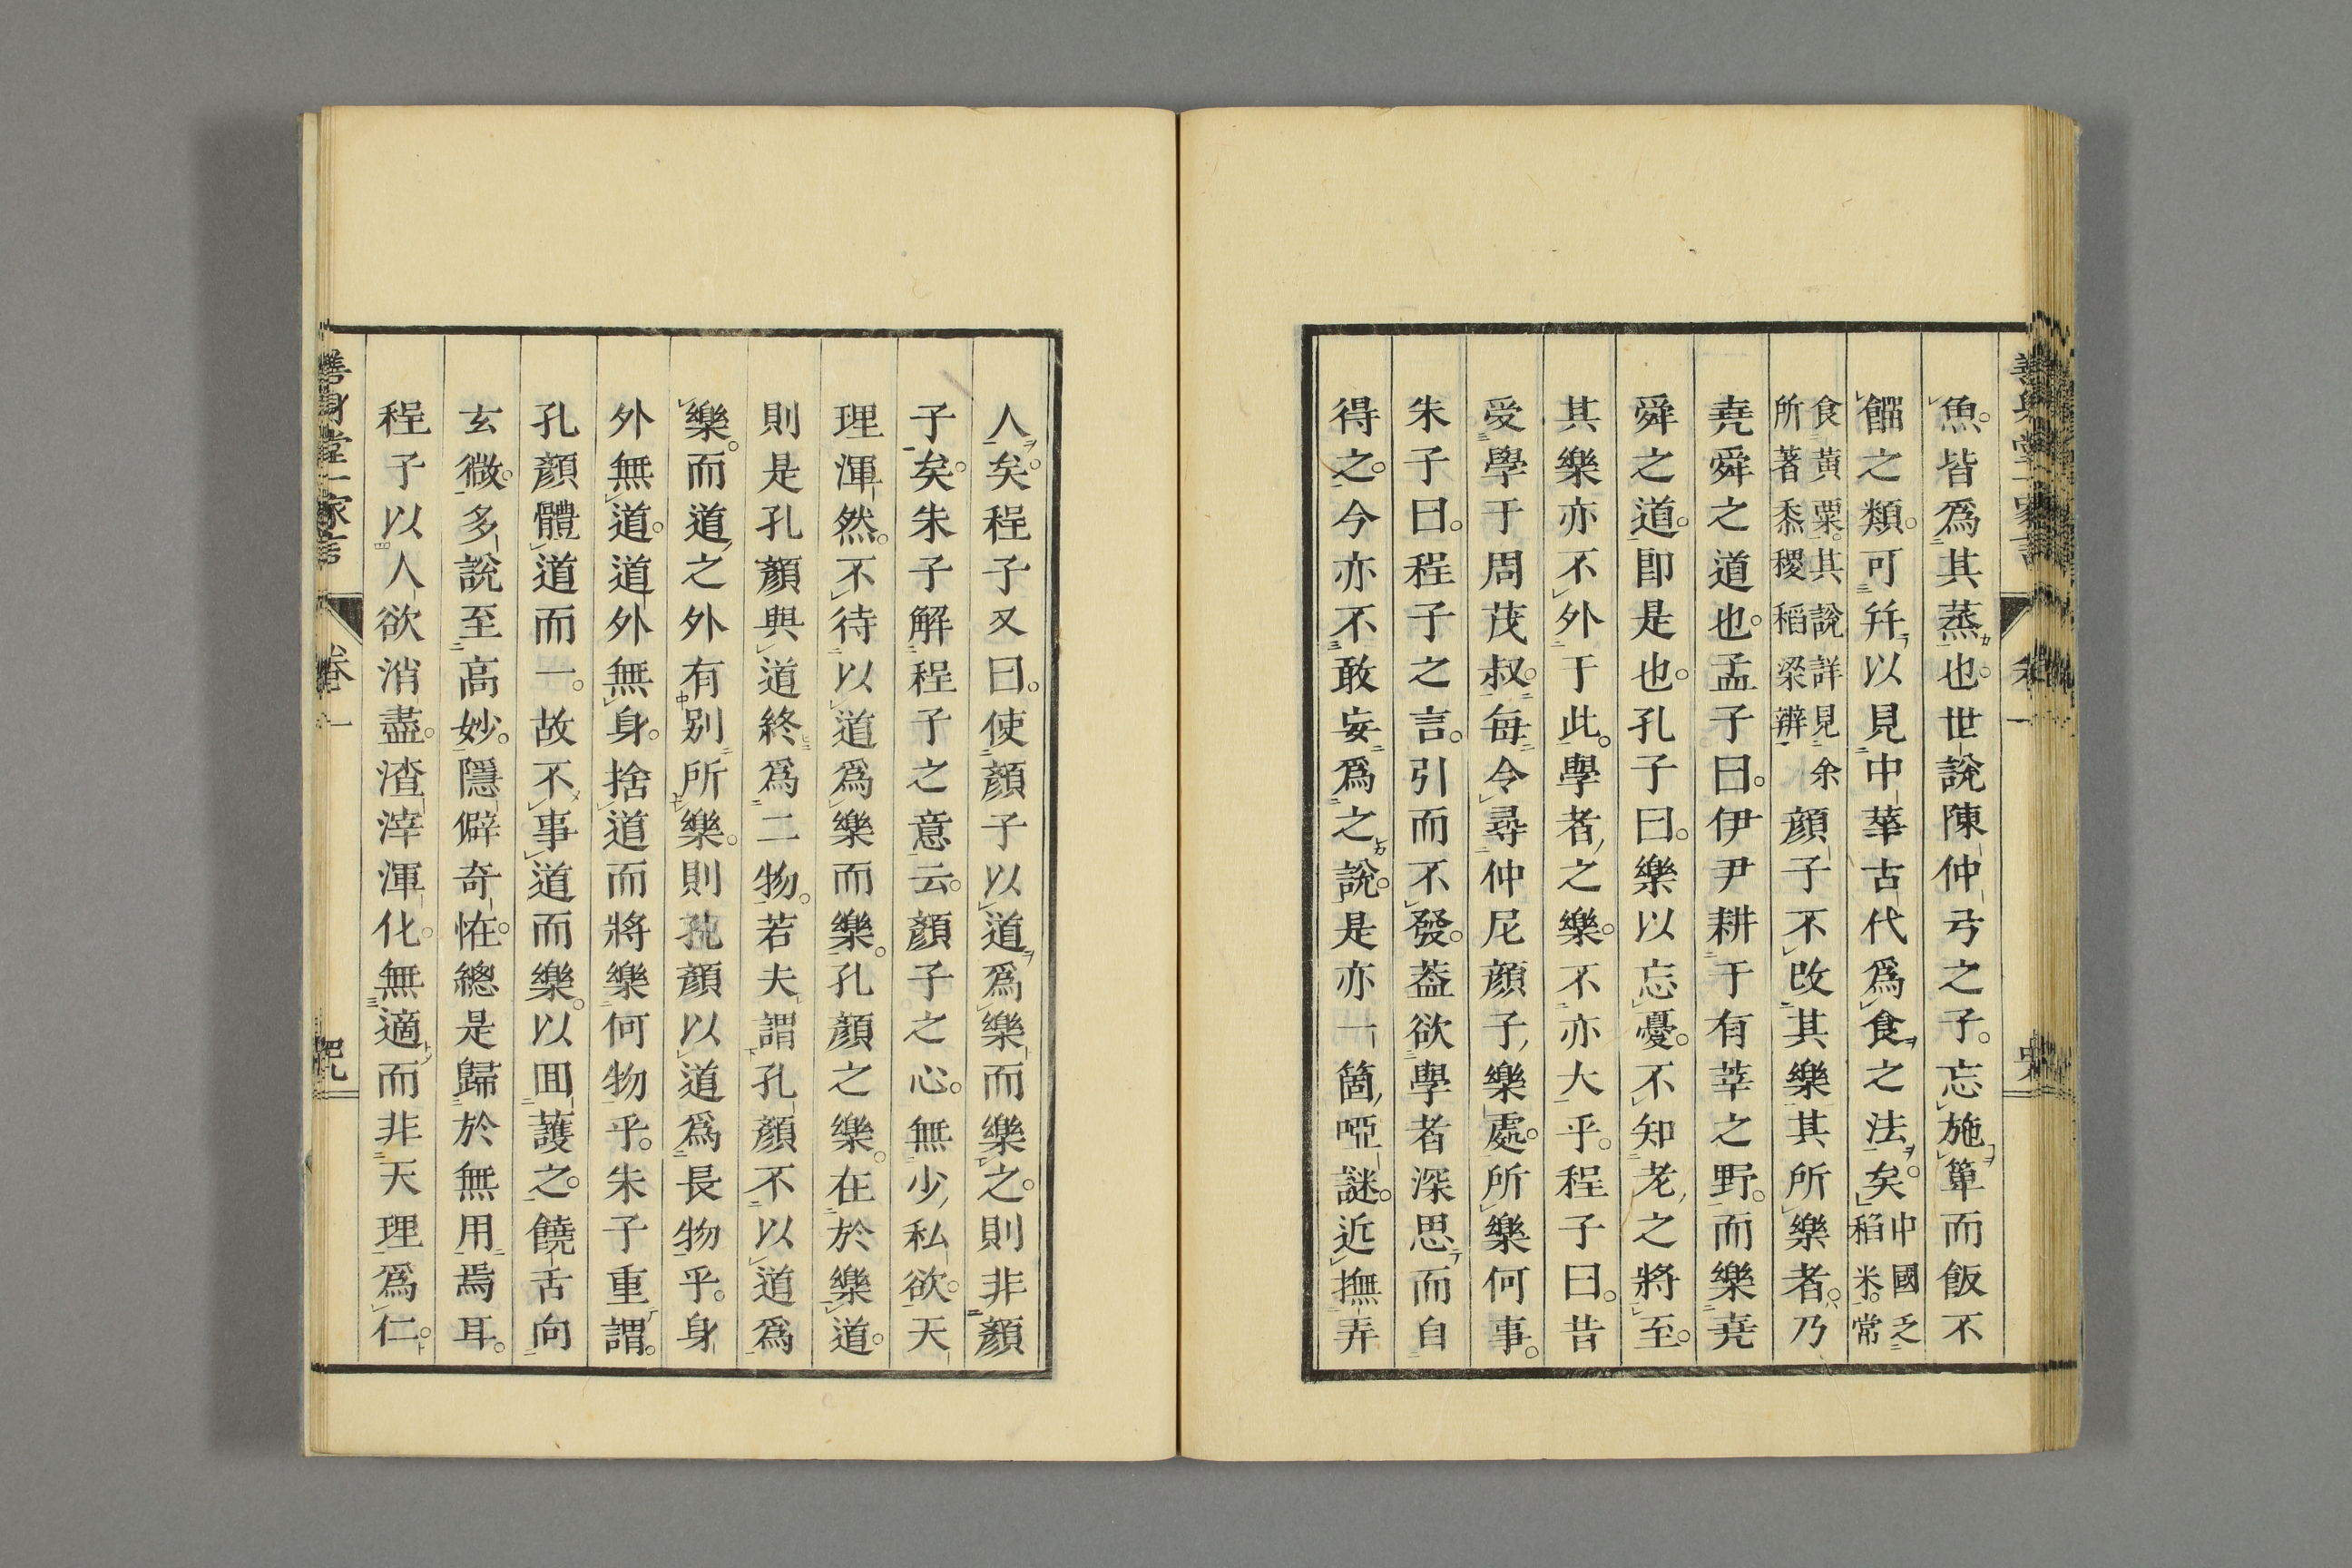 魚。皆爲其蒸也。世說陳仲弓之子。忘施箄而飯不
餾之類。可幷以見中華古代爲食之法矣。中國乏稻米。常
食黃粟。其說詳見余所著黍稷稻梁辨 顏子不改其樂其所樂者。乃
堯舜之道也。孟子曰。伊尹耕于有莘之野。而樂堯
舜之道。卽是也。孔子曰。樂以忘憂。不知老之將至。
其樂亦不外于此。學者之樂。不亦大乎。程子曰。昔
受學于周茂叔。每令尋仲尼顏子樂處。所樂何事。
朱子曰。程子之言。引而不發。蓋欲學者深思而自
得之。今亦不敢妄爲之說。是亦一箇啞謎。近撫弄
人矣。程子又曰。使顏子以道爲樂而樂之。則非顏
子矣。朱子解程子之意云。顏子之心。無少私欲。天
理渾然。不待以道爲樂而樂。孔顏之樂。在於樂道。
則是孔顏與道終爲二物。若夫謂孔顏不以道爲
樂。而道之外有別所樂。則孔顏以道爲長物乎。身
外無道。道外無身。捨道而將樂何物乎。朱子重謂。
孔顏體道而一。故不事道而樂。以回護之。饒舌向
玄微。多說至高妙。隱僻奇恠。總是歸於無用焉耳。
程子以人欲消盡。渣滓渾化。無適而非天理爲仁。
善身堂一家言 卷一